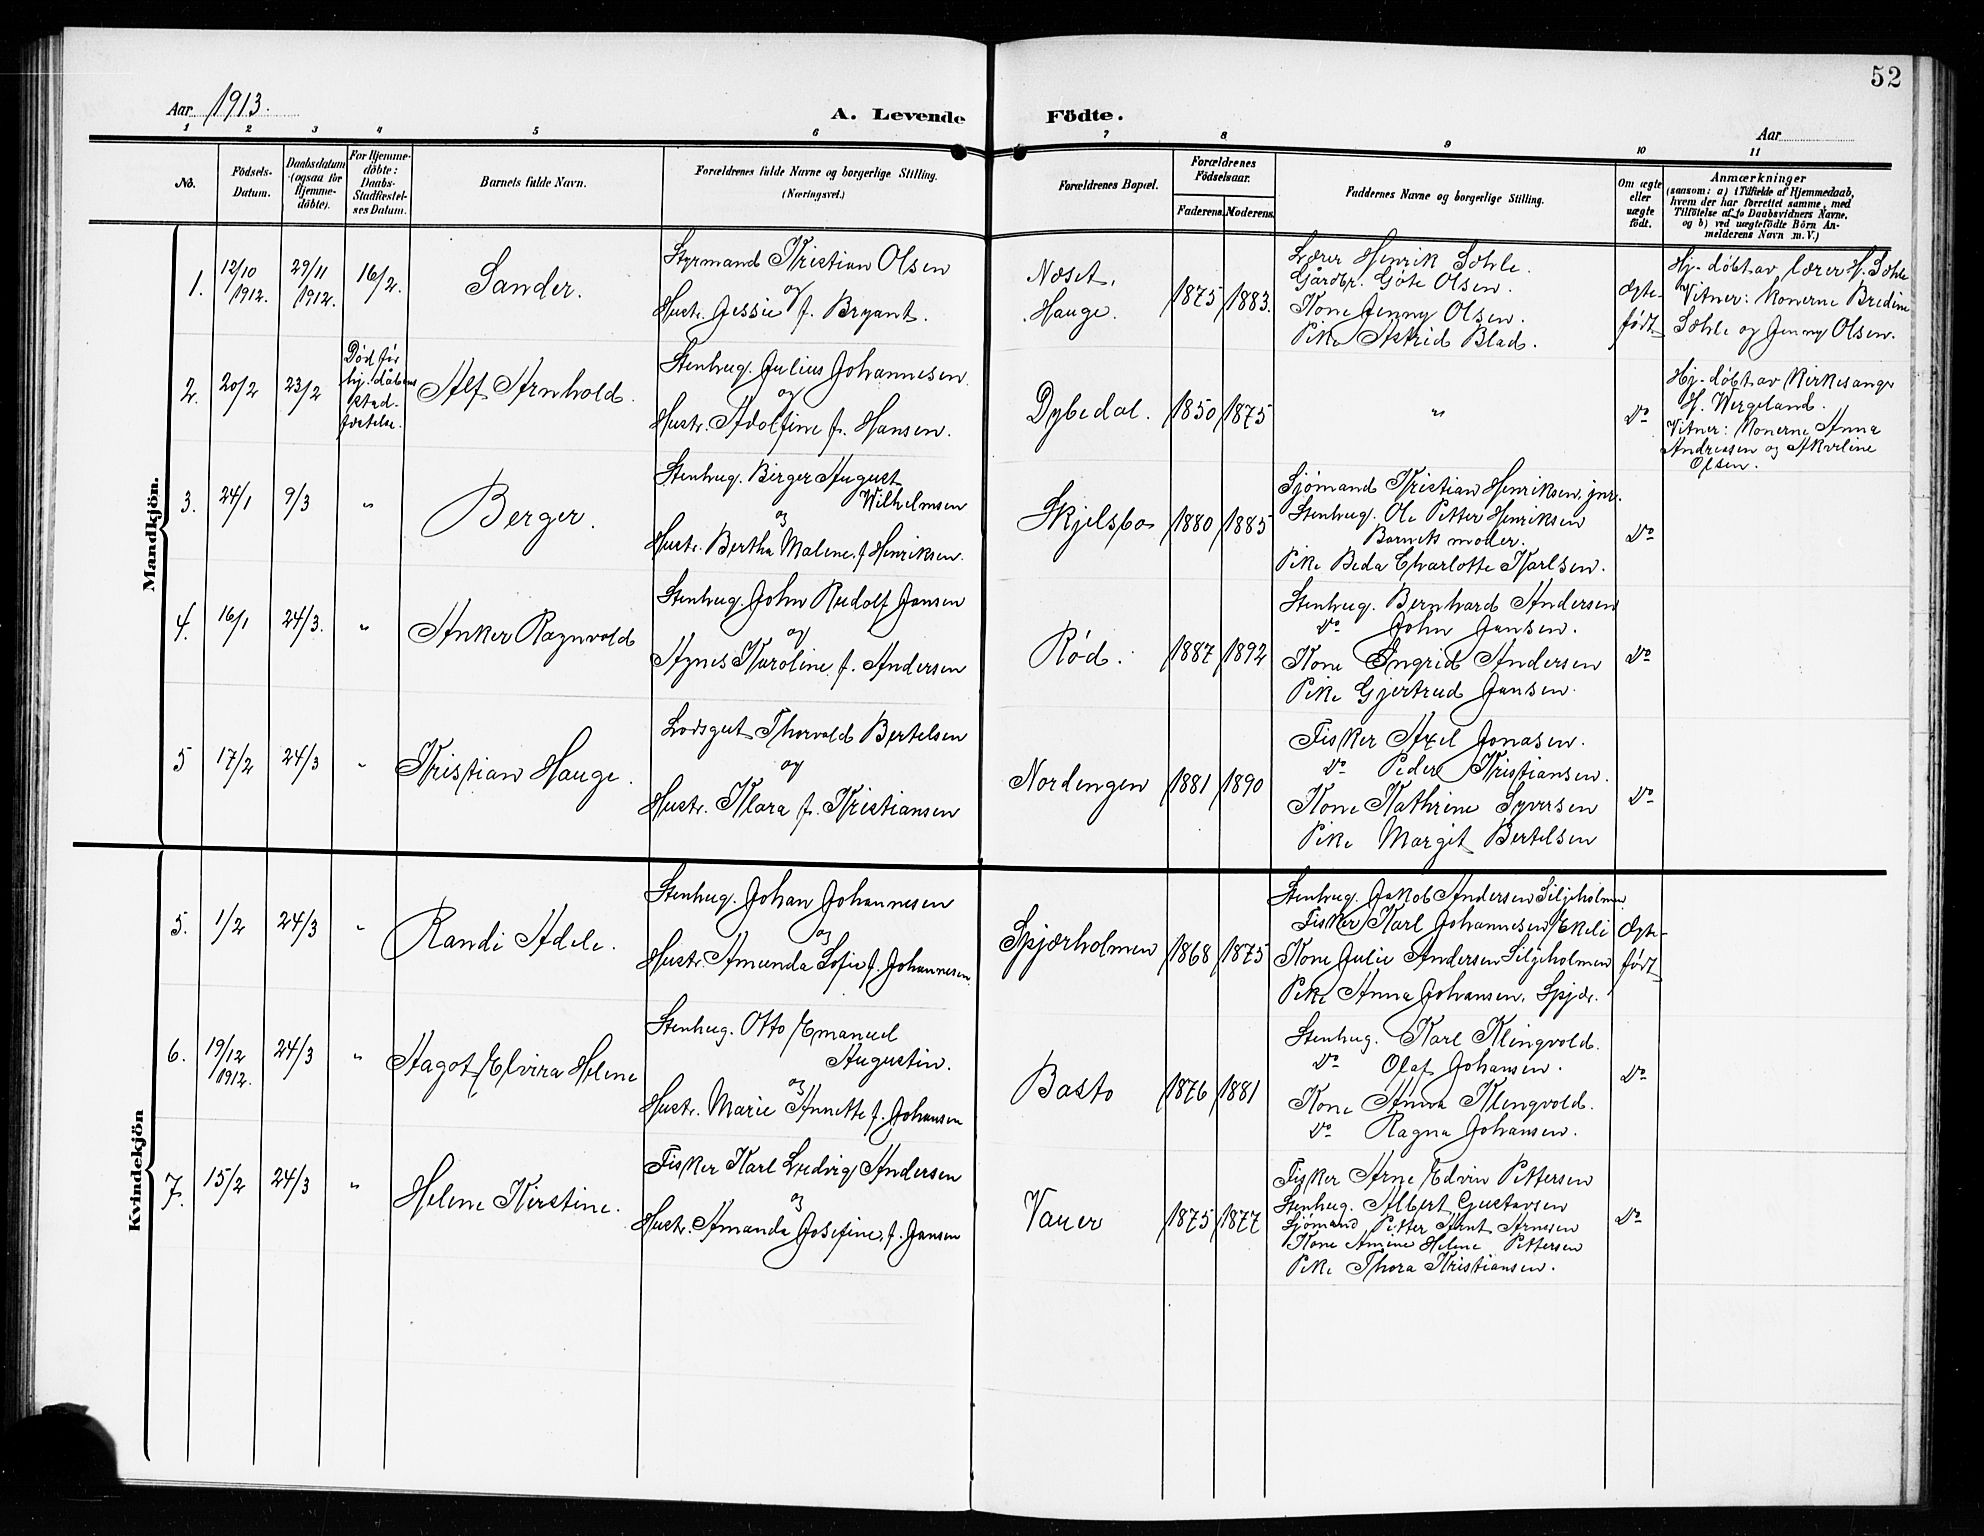 52
Aar 1913.
A. Levende Födte.
Aar
1 2 3 4 5 6 7 8 9 10 11
No.
Födsels-
Datum.
Daabsdatum
(ogsaa for
Hjemme-
döbte).
For Hjemme-
döbte:
Daabs-
Stadfæstel-
ses Datum.
Barnets fulde Navn.
Forældrenes fulde Navne og borgerlige Stilling.
(Næringsvei.)
Forældrenes Bopæl.
Forældrenes
Födselsaar.
Faderens. Moderens.
Faddernes Navne og borgerlige Stilling.
Om ægte
eller
uægte
født.
Anmærkninger
(saasom: a) i Tilfælde af Hjemmedaab,
hvem der har forrettet samme, med
Tilföielse af to Daabsvidners Navne.
og b) ved uægtefödte Börn An-
melderens Navn m.V.)
Mandkjön.
1.
12/10
1912.
29/11
1912.
16/2.
Sander.
Styrmand Kristian Olsen
og
Hustr. Jessie f. Bryant.
Næset,
Hauge.
1875 1883.
Lærer Henrik Sæhle.
Gårdbr. Göte Olsen.
Kone Jenny Olsen.
Pike Astrid Blad.
Ægte-
født
Hj-døbt av lærer H. Sæhle
Vitner: Konerne Bredine
Sæhle og Jenny Olsen.
2.
20/2
23/2
Død før
hj. dåbens
stad-
fæstelse.
Alf Arnhold.
Stenhug. Julius Johannesen
og
Hustr. Adolfine f. Hansen.
Dybedal.
1850 1875
"
Do
Hj-døbt av Kirkesanger
H. Wergeland.
Vitner: Konerne Anna
Andresen og Akveline
Olsen.
3.
24/1
9/3
"
Berger.
Stenhug. Birger August
Wilhelmsen
og
Hustr. Bertha Malene, f. Henriksen.
Skjelsbo
1880 1885
Sjømand Kristian Henriksen, jnr.
Stenhug. Ole Petter Henriksen
Barnets moder.
Pike Beda Charlotte Karlsen.
Do
4.
16/1
24/3.
"
Anker Ragnvald
Stenhug. John Rudolf Jansen
og
Agnes Karoline f. Andersen
Rød.
1887 1892
Stenhug. Bernhard Andersen
Do John Jansen.
Kone Ingrid Andersen
Pike Gjertrud Jansen.
Do
5
17/2
24/3
"
Kristian Hauge.
Lodsgut Thorvald Bertelsen
og
Hustr. Klara f. Kristiansen
Nordengen
1881 1890
Fisker Axel Jonasen.
Do Peder Kristiansen.
Kone Kathrine Syversen
Pike Margit Bertelsen
Do
Kvindekjön
5.
1/2
24/3
"
Randi Adele.
Stenhug. Johan Johannesen
og
Hustr. Amunda Sofie f. Johannesen
Spjærholmen
1868 1875
Stenhug. Jakob Andersen Siljeholmen
Fisker Karl Johannesen Ekeli
Kone Julie Andersen Siljeholmen
Pike Anna Johansen, Spjær.
Ægte-
født
6.
19/12
1912.
24/3
"
Aagot Elvira Helene
Stenhug. Otto Emanuel
Augustin.
og
Hustr. Marie Annette f. Johansen
Basto
1876 1881
Stenhug. Karl Klingvold.
Do Olaf Johansen.
Kone Anna Klingvold.
Do Ragna Johansen.
Do
7.
15/2
24/3
"
Helene Kirstine.
Fisker Karl Ludvig Andersen
og
Hustr. Amanda Josefine, f. Jansen
Vauer
1875 1877
Fisker Arne Edvin Pettersen
Stenhug. Albert Gustavsen
Sjømand Petter Arnt Arnesen
Kone Amine Helene Pettersen
Pike Thora Kristiansen.
Do